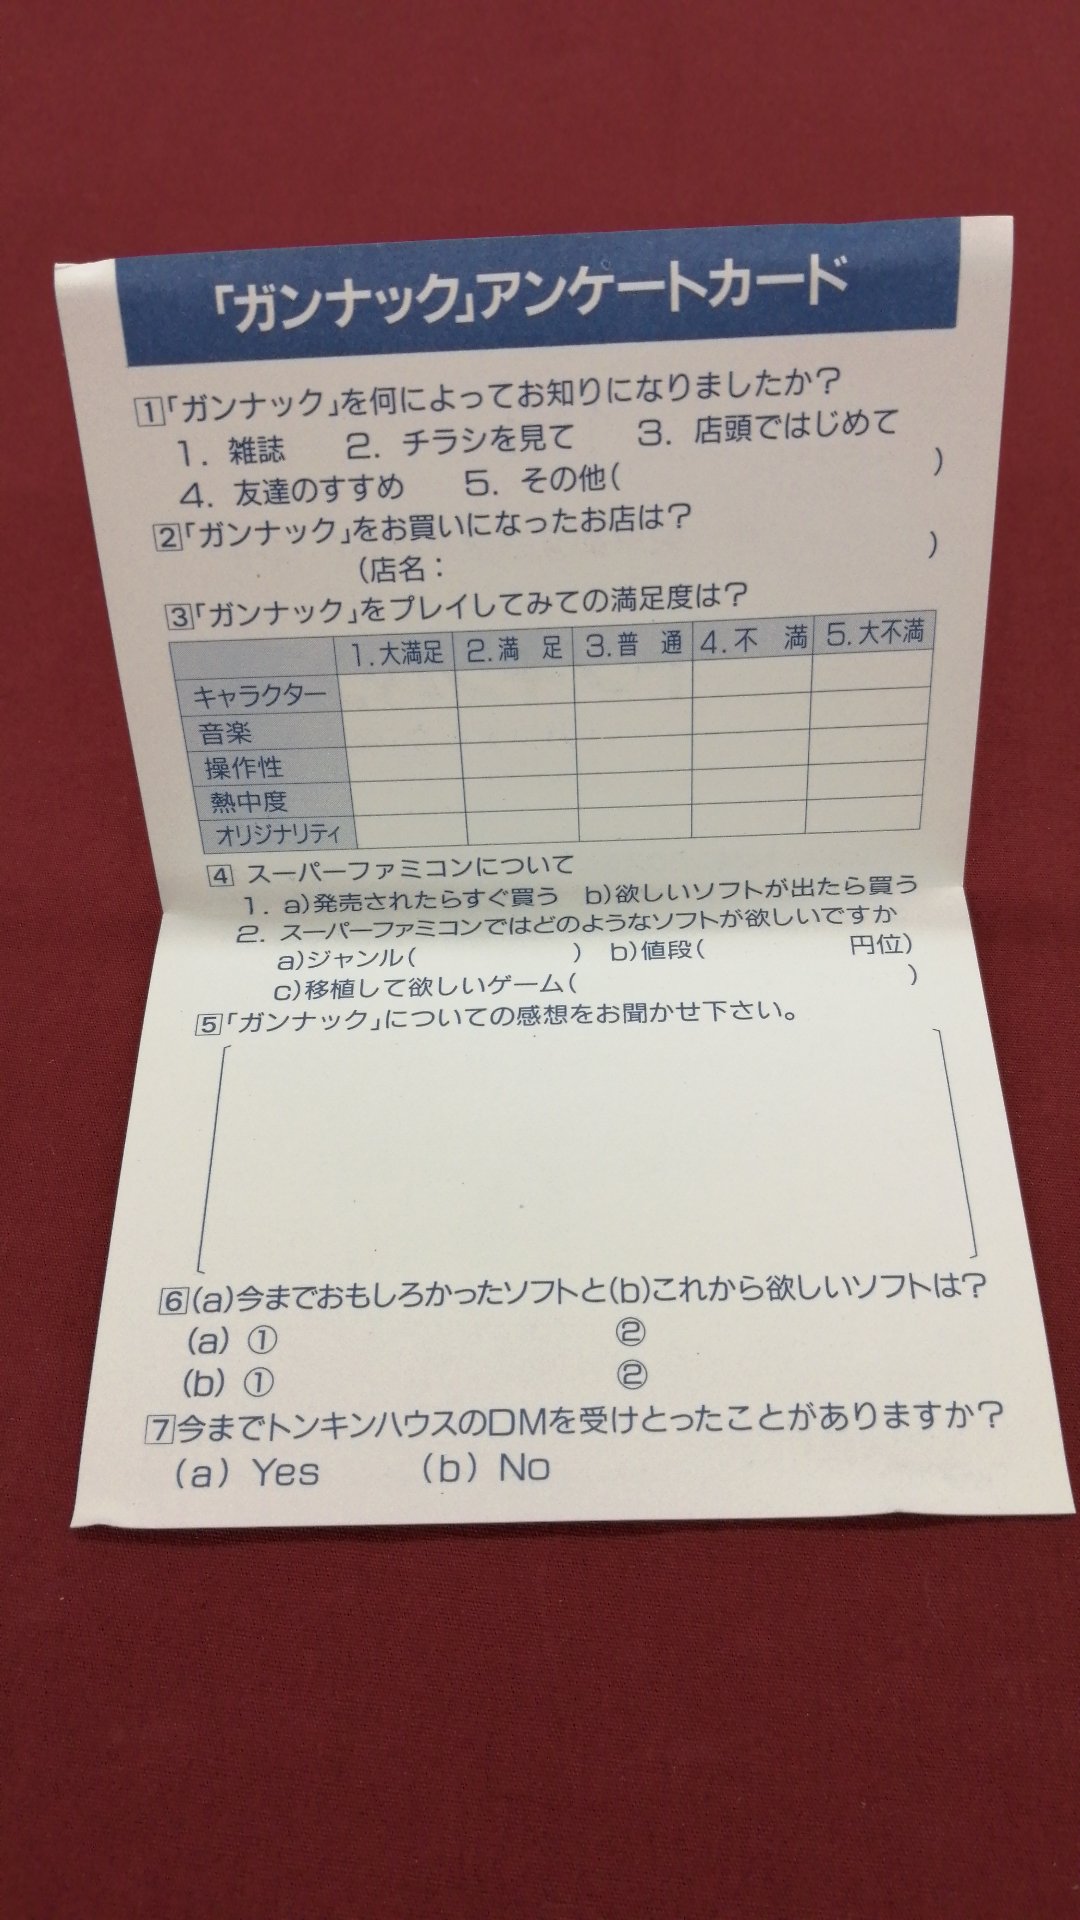 「ガンナック」アンケートカード
1「ガンナック」を何によってお知りになりましたか？
1. 雑誌　2. チラシを見て　3. 店頭ではじめて
4. 友達のすすめ　5. その他(　　)
2「ガンナック」をお買いになったお店は？
(店名：　　)
3「ガンナック」をプレイしてみての満足度は？
1.大満足　2.満　足　3.普　通　4.不　満　5.大不満
キャラクター
音楽
操作性
熱中度
オリジナリティ
4 スーパーファミコンについて
1. a)発売されたらすぐ買う　b)欲しいソフトが出たら買う
2. スーパーファミコンではどのようなソフトが欲しいですか
a)ジャンル(　　)　b)値段(　　円位)
c)移植して欲しいゲーム(　　)
5「ガンナック」についての感想をお聞かせ下さい。
6(a)今までおもしろかったソフトと(b)これから欲しいソフトは？
(a) ①　　②
(b) ①　　②
7今までトンキンハウスのDMを受けとったことがありますか？
(a) Yes　　(b) No